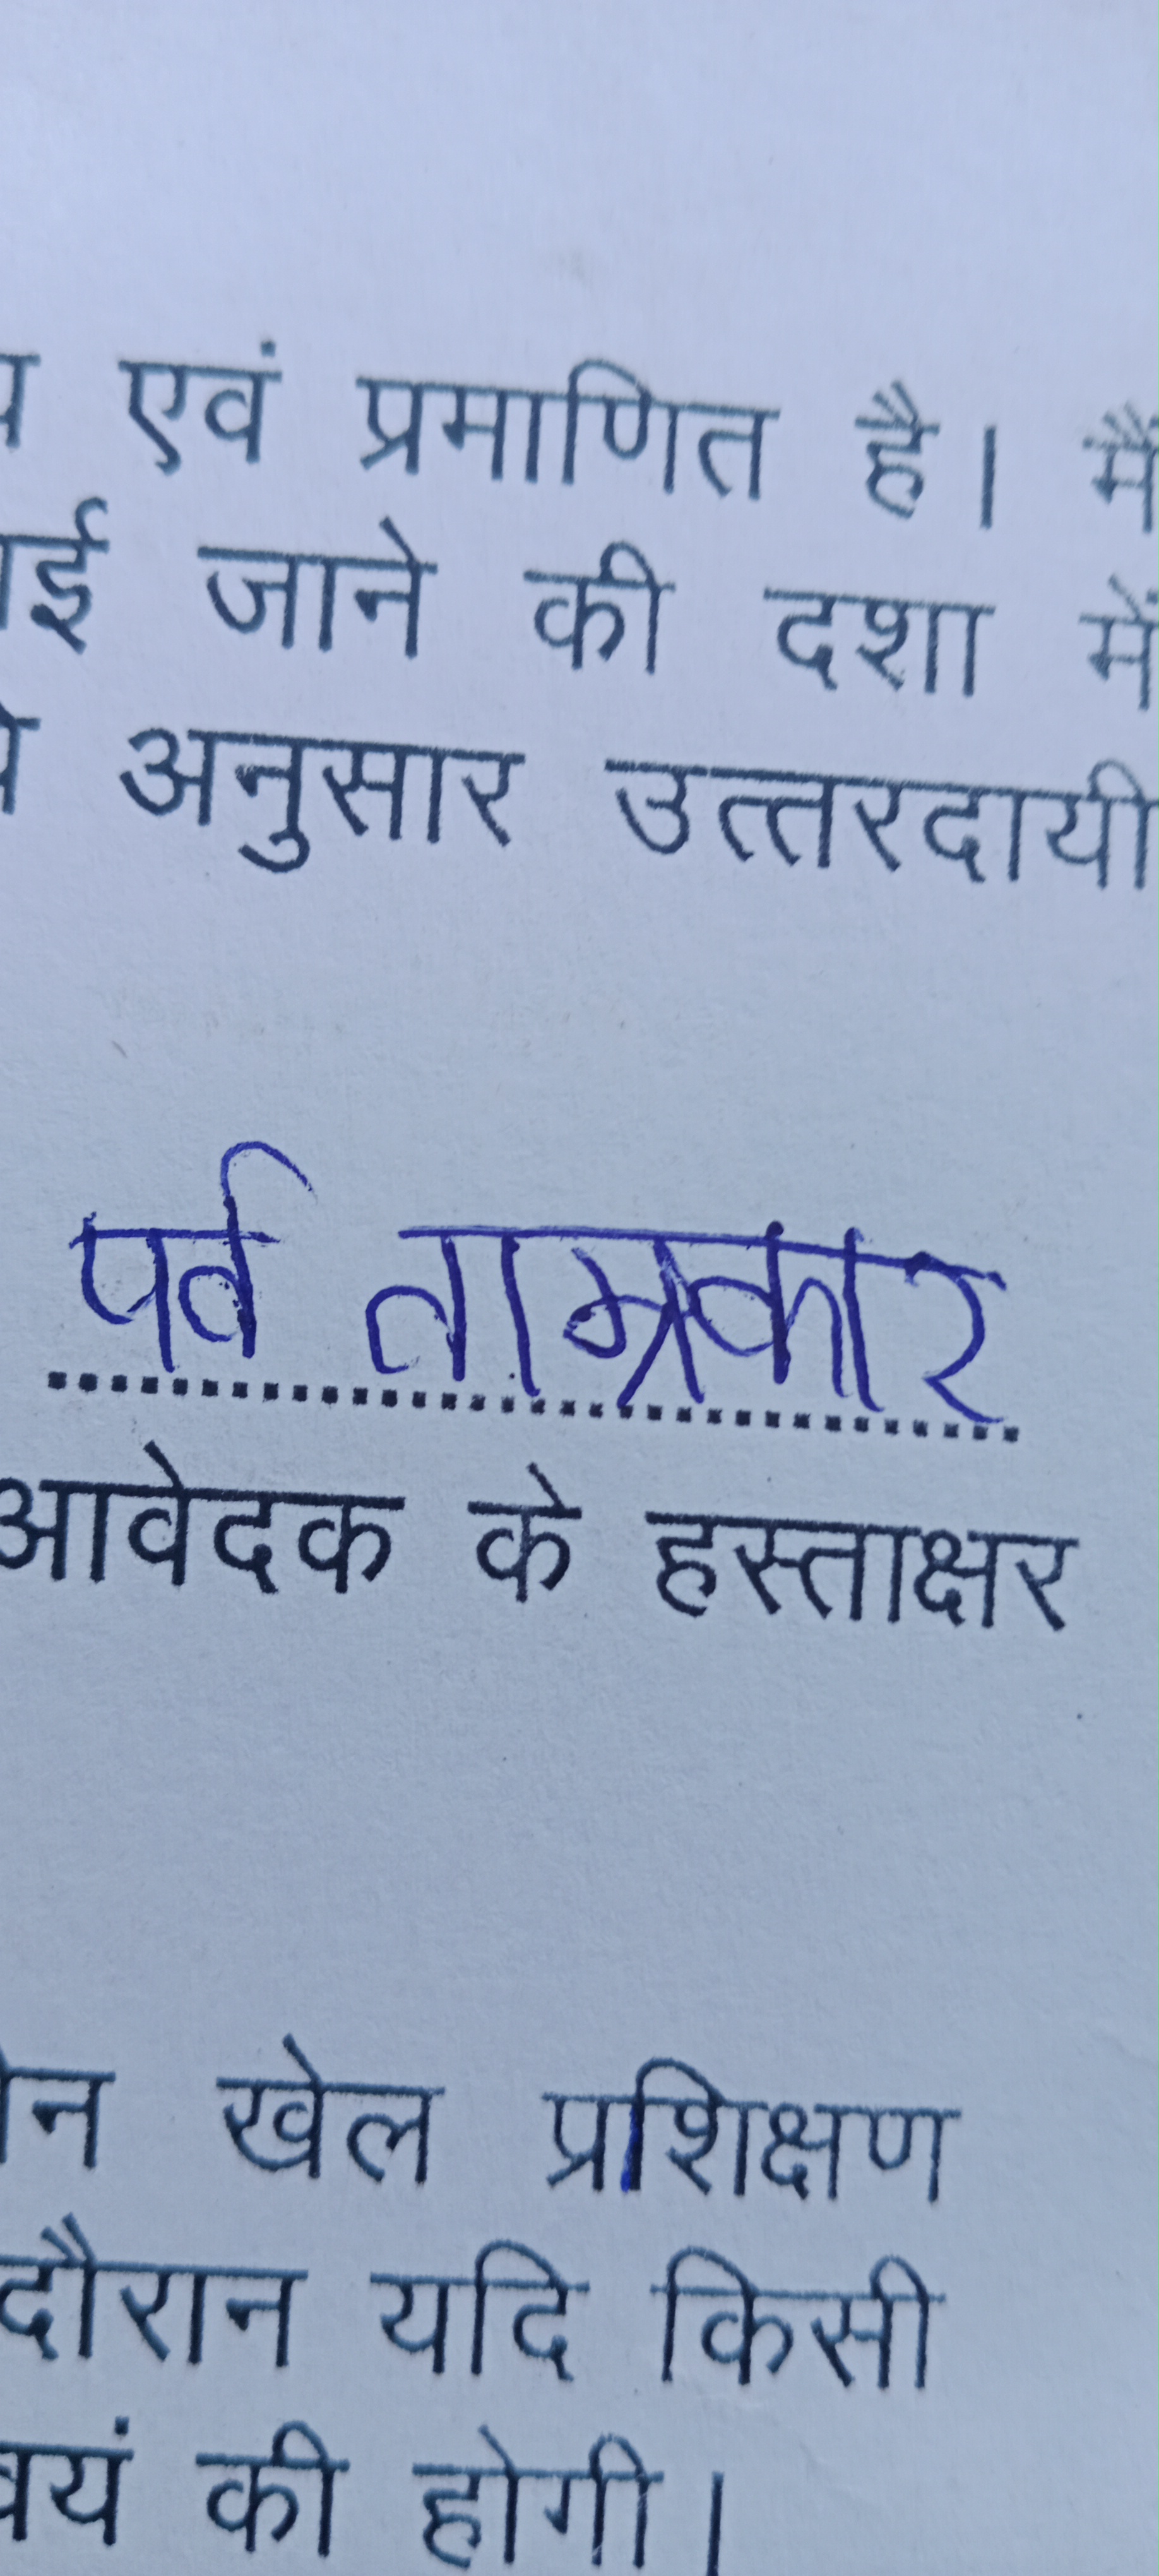 एवं प्रमाणित है। मैं
जाने की दशा में
अनुसार उत्तरदायी
पर्व ताम्रकार
आवेदक के हस्ताक्षर
खेल प्रशिक्षण
दौरान यदि किसी
की होगी।